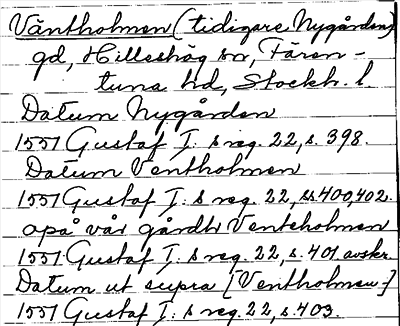 Väntholmen (tidigare Nygården)
gd, Hilleshög sn, Fären-
tuna hd, Stockh. l.
Datum Nygården
1551 Gustaf I:s reg. 22, s. 398.
Datum Ventholmen
1551 Gustaf I:s reg. 22, ss. 400, 402.
opå vår gårdh Venteholmen
1551 Gustaf I:s reg. 22, s. 401. avskr.
Datum ut supra [Ventholmen:]
1551 Gustaf I:s reg. 22, s. 403.